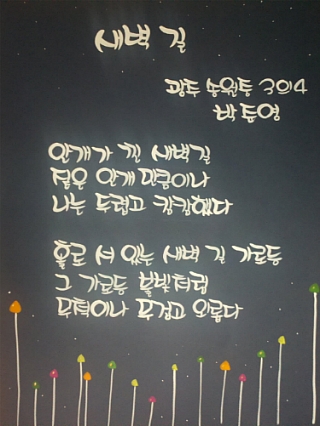 새벽 길
광주 송원중 3의4
박동영
안개가 낀 새벽길
짙은 안개 만큼이나
나는 두렵고 캄캄했다
홀로 서 있는 새벽 길 가로등
그 가로등 불빛처럼
무척이나 무겁고 외롭다